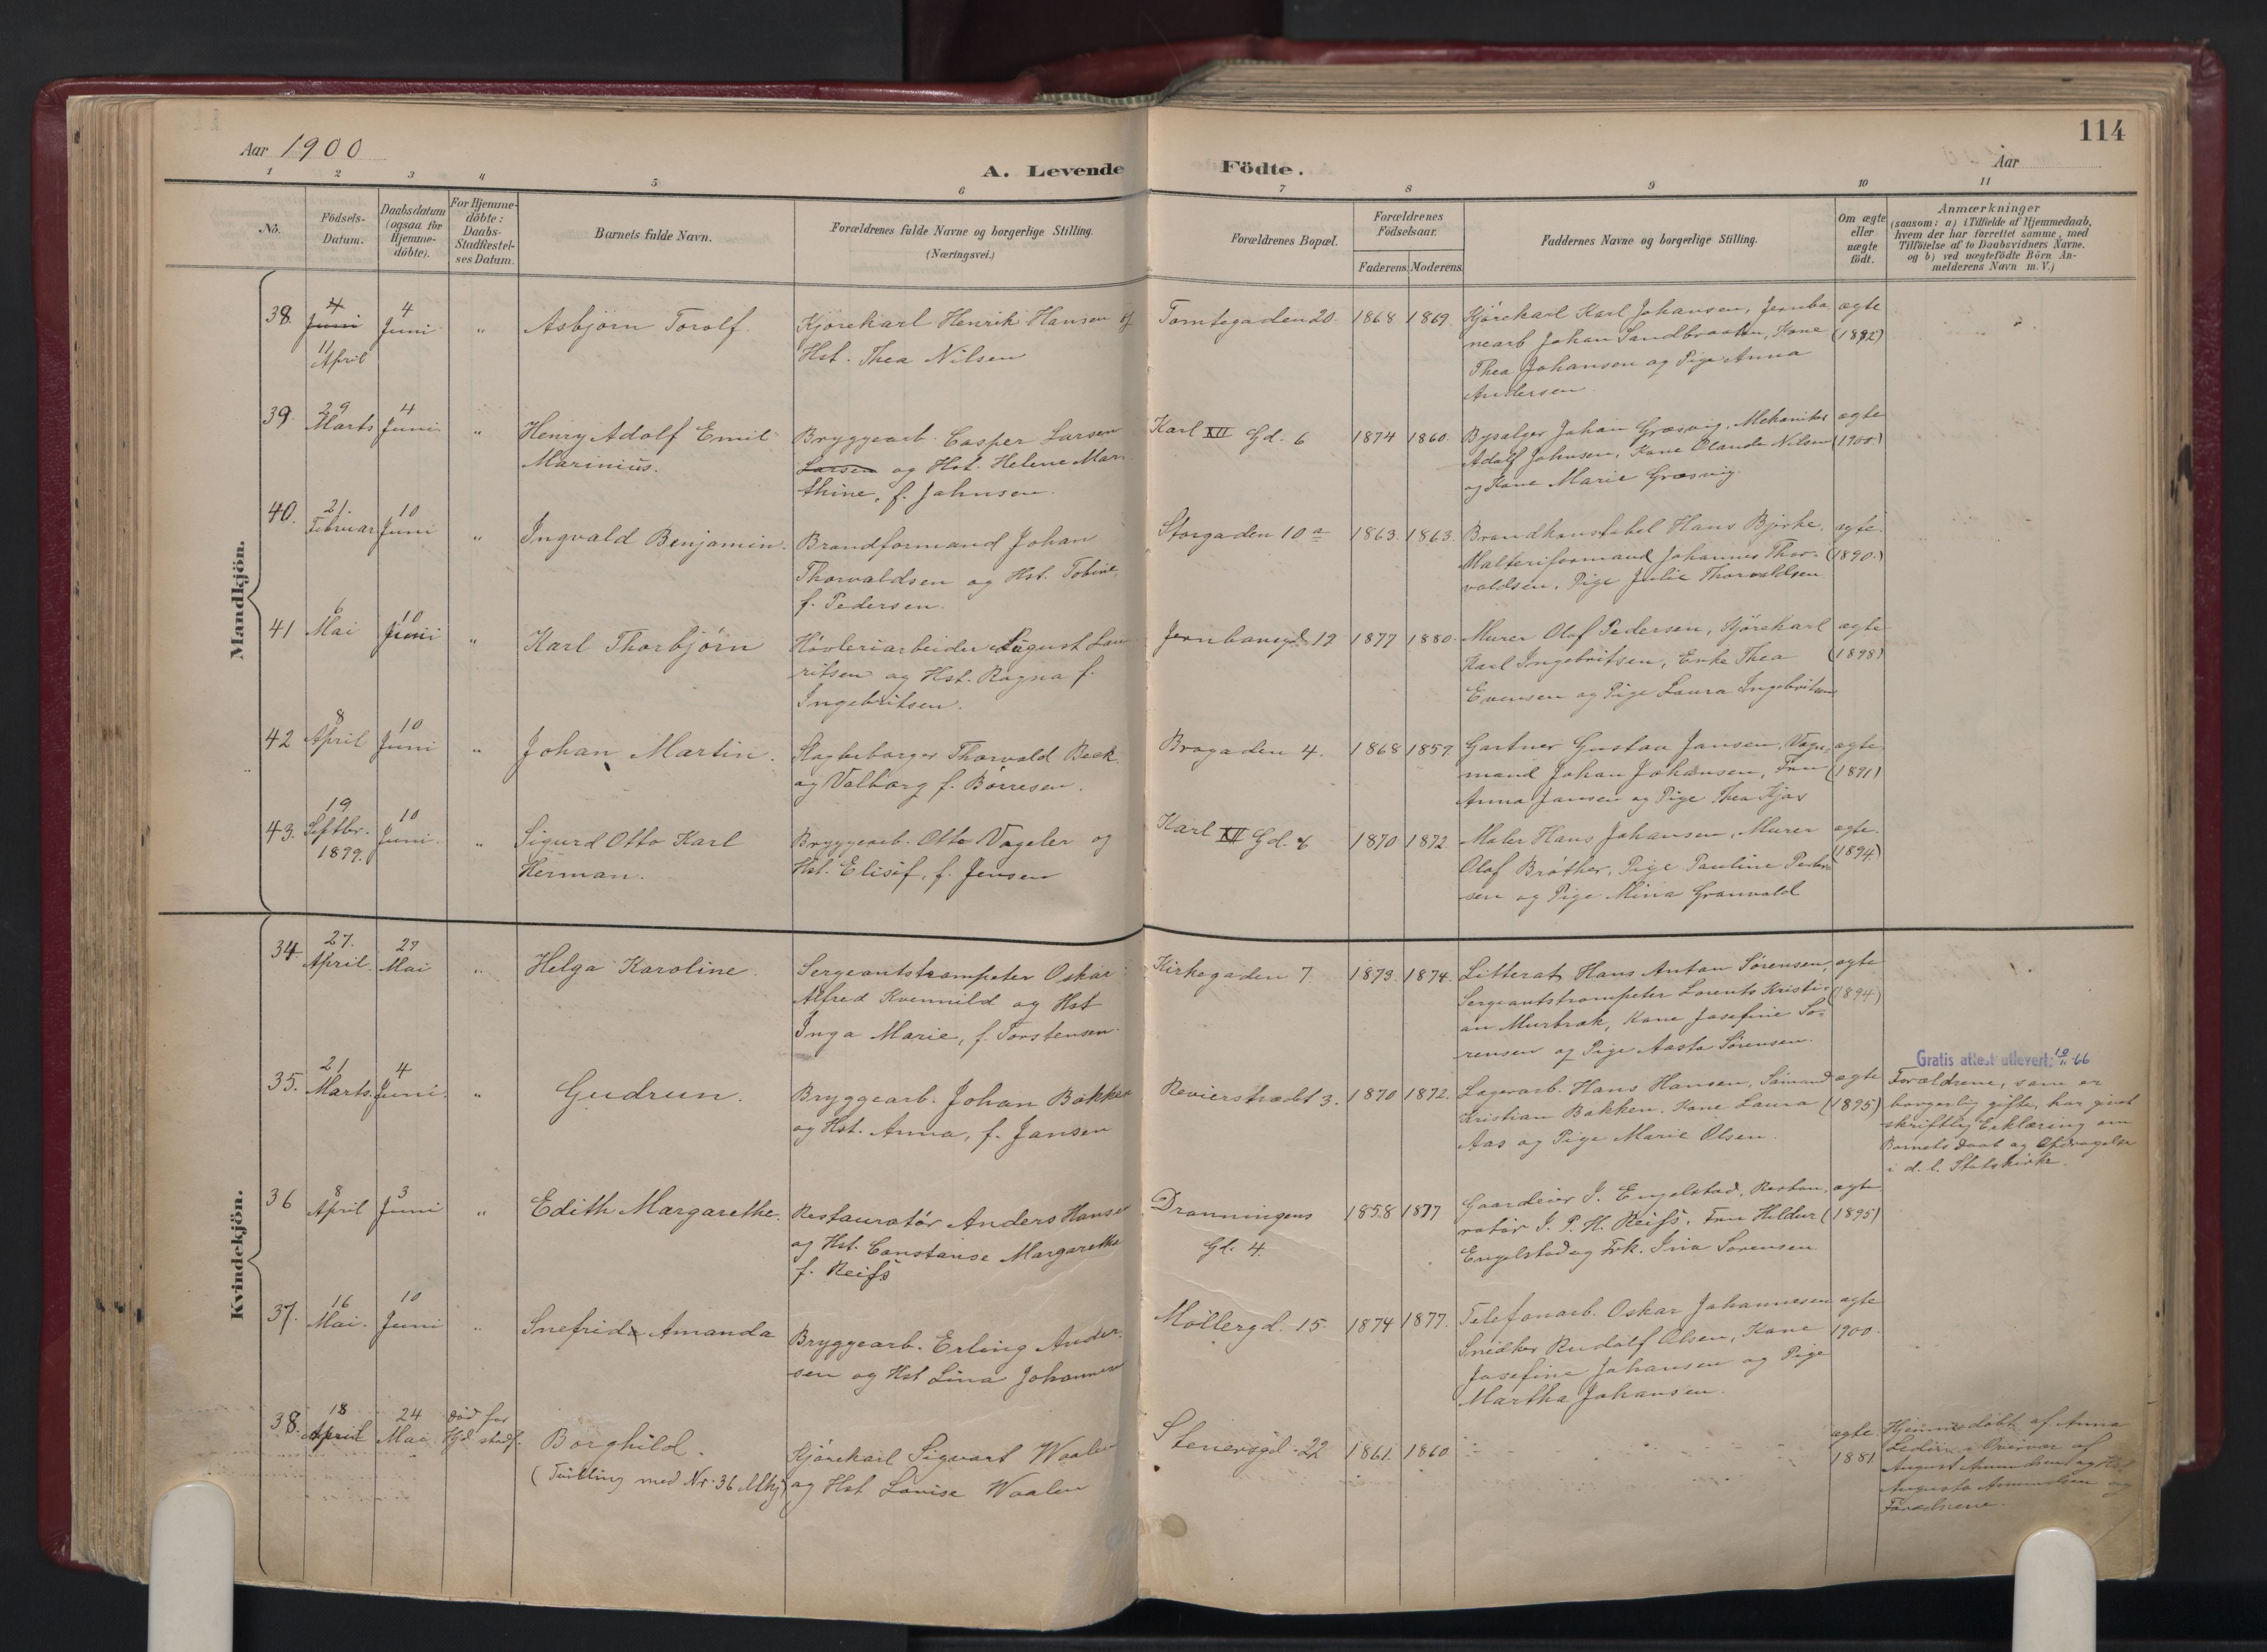 114
Aar 1900
Aar
A. Levende Födte.
1 2 3 4 5 6 7 8 9 10 11
No.
Födsels-Datum.
Daabsdatum (ogsaa for Hjemme-döbte).
For Hjemme-döbte: Daabs-Stadfæstel-ses Datum.
Barnets fulde Navn.
Forældrenes fulde Navne og borgerlige Stilling.
(Næringsvei.)
Forældrenes Bopæl.
Forældrenes Födselsaar.
Faderens. Moderens.
Faddernes Navne og borgerlige Stilling.
Om ægte eller uægte födt.
Anmærkninger
(saasom: a) i Tilfælde af Hjemmedaab,
hvem der har forrettet samme, med
Tilföielse af to Daabsvidners Navne.
og b) ved uægtefödte Börn An-
melderens Navn m. V.)
Mandkjön.
38. 4 Juni 11 April
4 Juni
"
Asbjørn Torolf.
Kjørekarl Henrik Hansen og
Hst. Thea Nilsen
Tomtegaden 20.
1868 1869
Kjørekarl Karl Johansen, Jernba
nearb Johan Sandbraaten, Kone
Thea Johansen og Pige Anna
Andersen
ægte
(1892)
39. 29 Marts
4 Juni
"
Henry Adolf Emil
Marinius.
Bryggearb. Casper Larsen
Larsen og Hst. Helene Mar
thine, f. Johnsen.
Karl XII Gd. 6
1874 1860.
Bysælger Johan Græsvig, Mekaniker
Adolf Johnsen, Kone Olande Nilsen
og Kone Marie Græsvig
ægte
(1900.)
40. 21. Februar
10 Juni
"
Ingvald Benjamin.
Brandformand Johan
Thorvaldsen og Hst. Tobine
f. Pedersen.
Storgaden 10 a
1863. 1863.
Brandkonstabel Hans Bjerke,
Malteriformand Johannes Thor-
valdsen, Pige Julie Thorvaldsen
ægte.
(1890.)
41 6 Mai
10 Juni
"
Karl Thorbjørn
Høvleriarbeider August Lau
ritsen og Hst. Ragna f.
Ingebritsen.
Jernbanegd. 12
1877 1880.
Murer Olof Pedersen, Kjørekarl
Karl Ingebritsen, Enke Thea
Evensen og Pige Laura Ingebritsen
ægte
(1898)
42 8 April
10 Juni
"
Johan Martin.
Slagteborger Thorvald Beck
og Valborg f. Børresen.
Brogaden 4.
1868 1857
Gartner Gustav Jansen, Vogn-
mand Johan Johansen, Fru
Anna Jansen og Pige Thea Kjær
ægte
(1891)
43. 19 Septbr. 1899.
10 Juni.
"
Sigurd Otto Karl
Herman.
Bryggearb. Otto Vogeler og
Hst. Elisif, f. Jensen
Karl XII Gd. 6
1870 1872
Maler Hans Johansen, Murer
Olaf Brøther, Pige Pauline Peder
sen og Pige Mina Granvold
ægte.
(1894)
Kvindekjön.
34. 27. April.
27 Mai
"
Helga Karoline.
Sergeantstrompeter Oskar
Alfred Kvernvild og Hst
Inga Marie, f. Torstensen
Kirkegaden 7
1873. 1874.
Litterat Hans Anton Sørensen,
Sergeantstrompeter Lorents Kristi-
an Murbræk, Kone Josefine Sø-
rensen og Pige Aasta Sørensen.
ægte
(1894)
35. 21 Marts
4 Juni.
"
Gudrun.
Bryggearb. Johan Bakken
og Hst. Anna, f. Jansen
Revierstrædet 3.
1870 1872.
Lagerarb. Hans Hansen, Sømand
Kristian Bakken, Kone Laura
Aas og Pige Marie Olsen.
ægte
(1895)
Gratis attest utlevert: 10/11 66
Forældrene, som er
borgerlig gifte, har givet
skriftlig Erklæring om
Barnets Daab og Opdragelse
i d. l. Statskirke.
36 8 April
3 Juni
"
Edith Margarethe.
Restauratør Anders Hansen
og Hst. Constanse Margarethe
f. Reifs
Dronningens
Gd. 4.
1858 1877
Gaardeier I. Engelstad, Restau-
ratør I. P. H. Reifs, Fru Hildur
Engelstad og Frk. Ina Sorensen
ægte
(1895)
37. 16 Mai.
10 Juni
"
Snefrida Amanda
Bryggearb. Erling Ander-
sen og Hst Lina Johannesen
Møllergd. 15.
1874 1877.
Telefonarb. Oskar Johannesen
Snedker Rudolf Olsen, Kone
Josefine Johansen og Pige
Martha Johansen.
ægte
1900.
38. 18 April
24 Mai
død før
Hjd. stadf.
Borghild.
(Tvilling med Nr. 36 Mkj)
Kjørekarl Sigvart Waaler
og Hst Lovise Waaler
Stenersgd. 22
1861. 1860
ægte
1881.
Hjemmedøbt af Anna
i Overvær af
August Amundsen og Hst
Augusta Amundsen og
Forældrene.